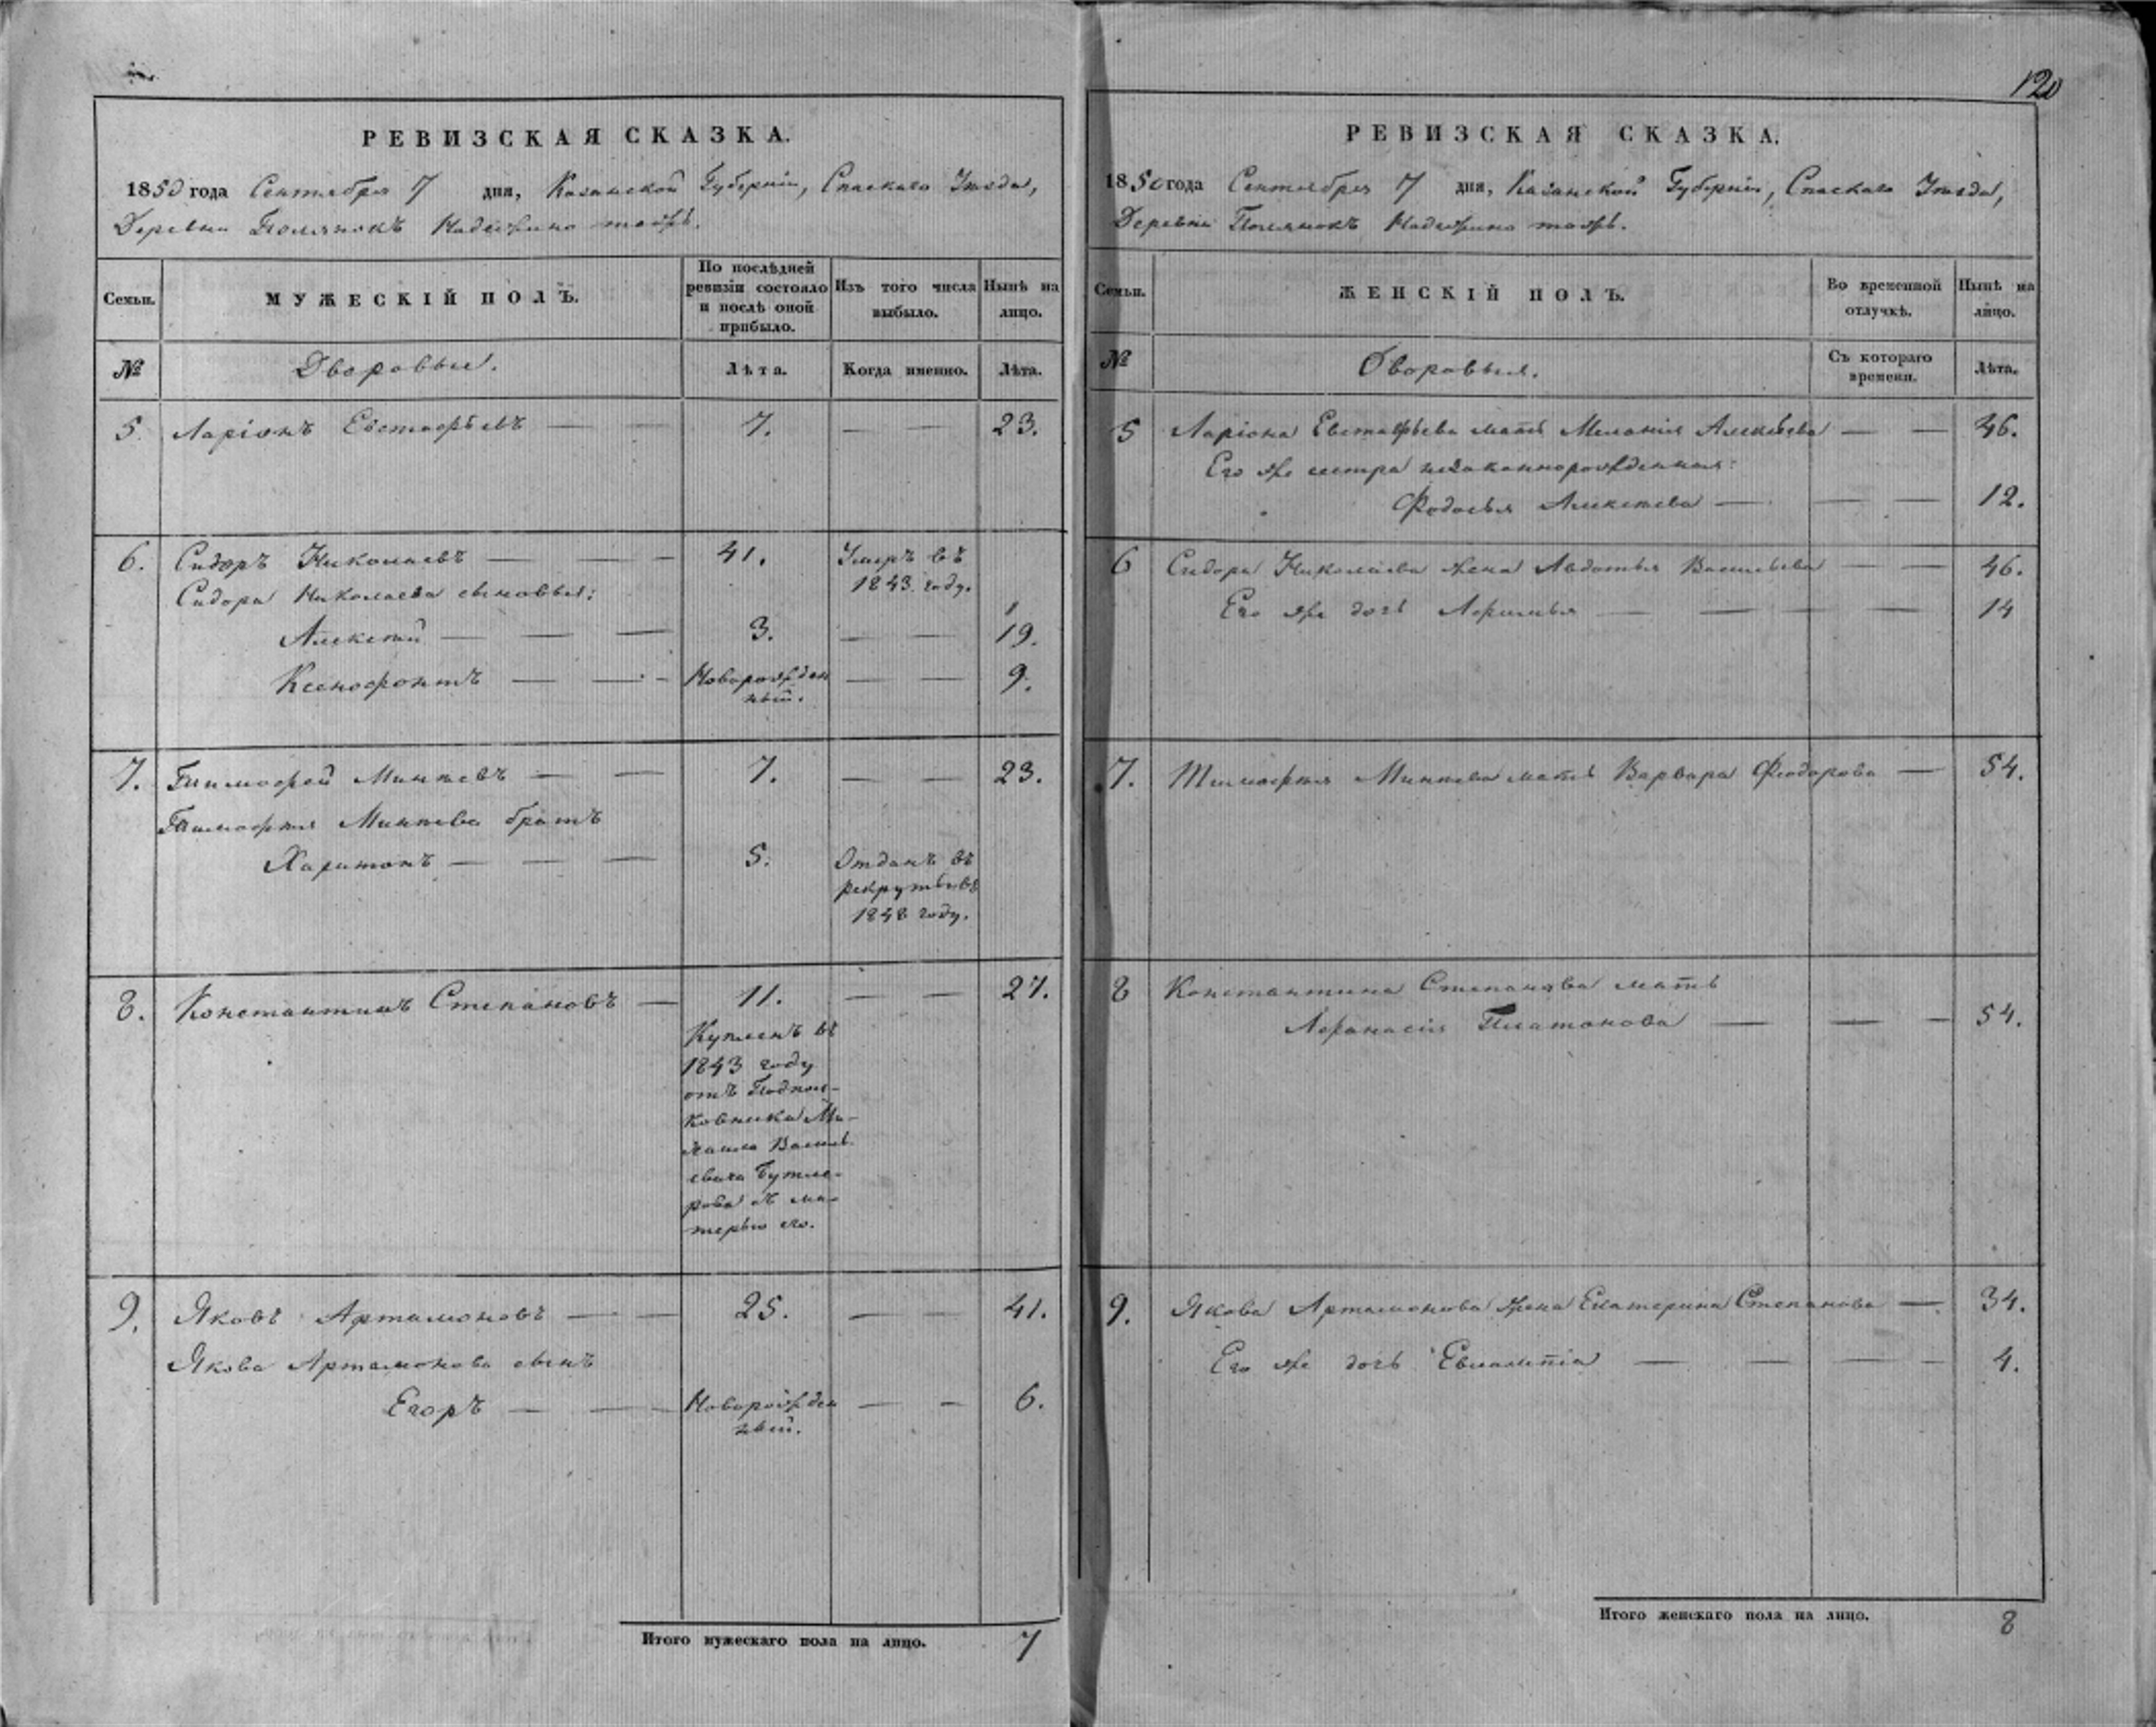 120
РЕВИЗСКАЯ СКАЗКА.
1850 года Сентября 7 дня, Казанской Губерніи, Спаскаго Уѣзда,
Деревни Полянокъ Надежино тожъ.
Семьи.
МУЖЕСКІЙ ПОЛЪ.
По послѣдней ревизіи состояло и послѣ оной прибыло.
Изъ того числа выбыло.
Нынѣ на лицо.
№
Дворовые.
Лѣта.
Когда именно.
Лѣта.
5. Ларіонъ Евстафьевъ — — 7. — — 23.
6. Сидоръ Николаевъ — — — 41. Умеръ въ
1843 году.
Сидора Николаева сыновья:
Алексѣй — — — 3. — — 19.
Ксенофонтъ — — - Новорожден — — 9.
ный.
7. Тимофей Минѣевъ — — 7. — — 23.
Тимофѣя Минѣева братъ
Харитонъ — — — 5. Отданъ въ
рекруты въ
1848 году.
8. Константинъ Степановъ — 11. — — 27.
Купленъ въ
1843 году
отъ Подпол-
ковника Ми-
хаила Василь
евича Бутле-
рова съ ма-
терью его.
9. Яковъ Артамоновъ — — 25. — — 41.
Якова Артамонова сынъ
Егоръ — — - Новорожден — — 6.
ный.
Итого мужескаго пола на лицо. 7
РЕВИЗСКАЯ СКАЗКА.
1850 года Сентября 7 дня, Казанской Губерніи, Спаскаго Уѣзда,
Деревни Полянокъ Надежино тожъ.
Семьи.
ЖЕНСКІЙ ПОЛЪ.
Во временной отлучкѣ.
Нынѣ на лицо.
№
Дворовыя.
Съ котораго времени.
Лѣта.
5 Ларіона Евстафьева мать Меланія Алексѣева — — 46.
Его же сестра незаконнорожденная:
Федосья Алексѣева — — — 12.
6 Сидора Николаева жена Авдотья Васильева — — 46.
Его же дочь — — — — 14
7. Тимофѣя Минѣева мать Варвара Феодорова — 54.
8 Константина Степанова мать
Афанасія Платонова — — — 54.
9. Якова Артамонова жена Екатерина Степанова — 34.
Его же дочь Евлампіа — — — — 4.
Итого женскаго пола на лицо. 8